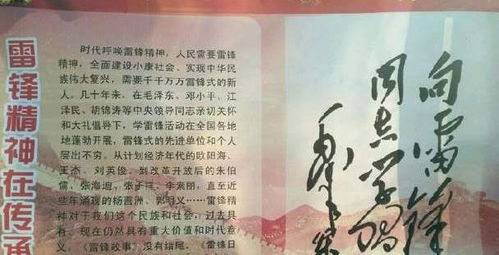 雷锋精神在传承
时代呼唤雷锋精神，人民需要雷锋
精神，全面建设小康社会、实现中华民
族伟大复兴，需要千千万万雷锋式的新
人。几十年来，在毛泽东、邓小平、江
泽民、胡锦涛等中央领导同志亲切关怀
和大礼倡导下，学雷锋活动在全国各地
地蓬勃开展，雷锋式的先进单位和个人
层出不穷。从计划经济年代的欧阳海、
王杰、刘英俊，到改革开放后的朱伯
儒、张海迪、张子祥、李素丽，直至近些
年涌现的杨善洲、郭明义……雷锋精
神对于我们这个民族和社会，过去具
有、现在仍然具有重大价值和时代意
义。《雷锋故事》没有结尾，《雷锋日
向雷锋
同志学习
毛泽东